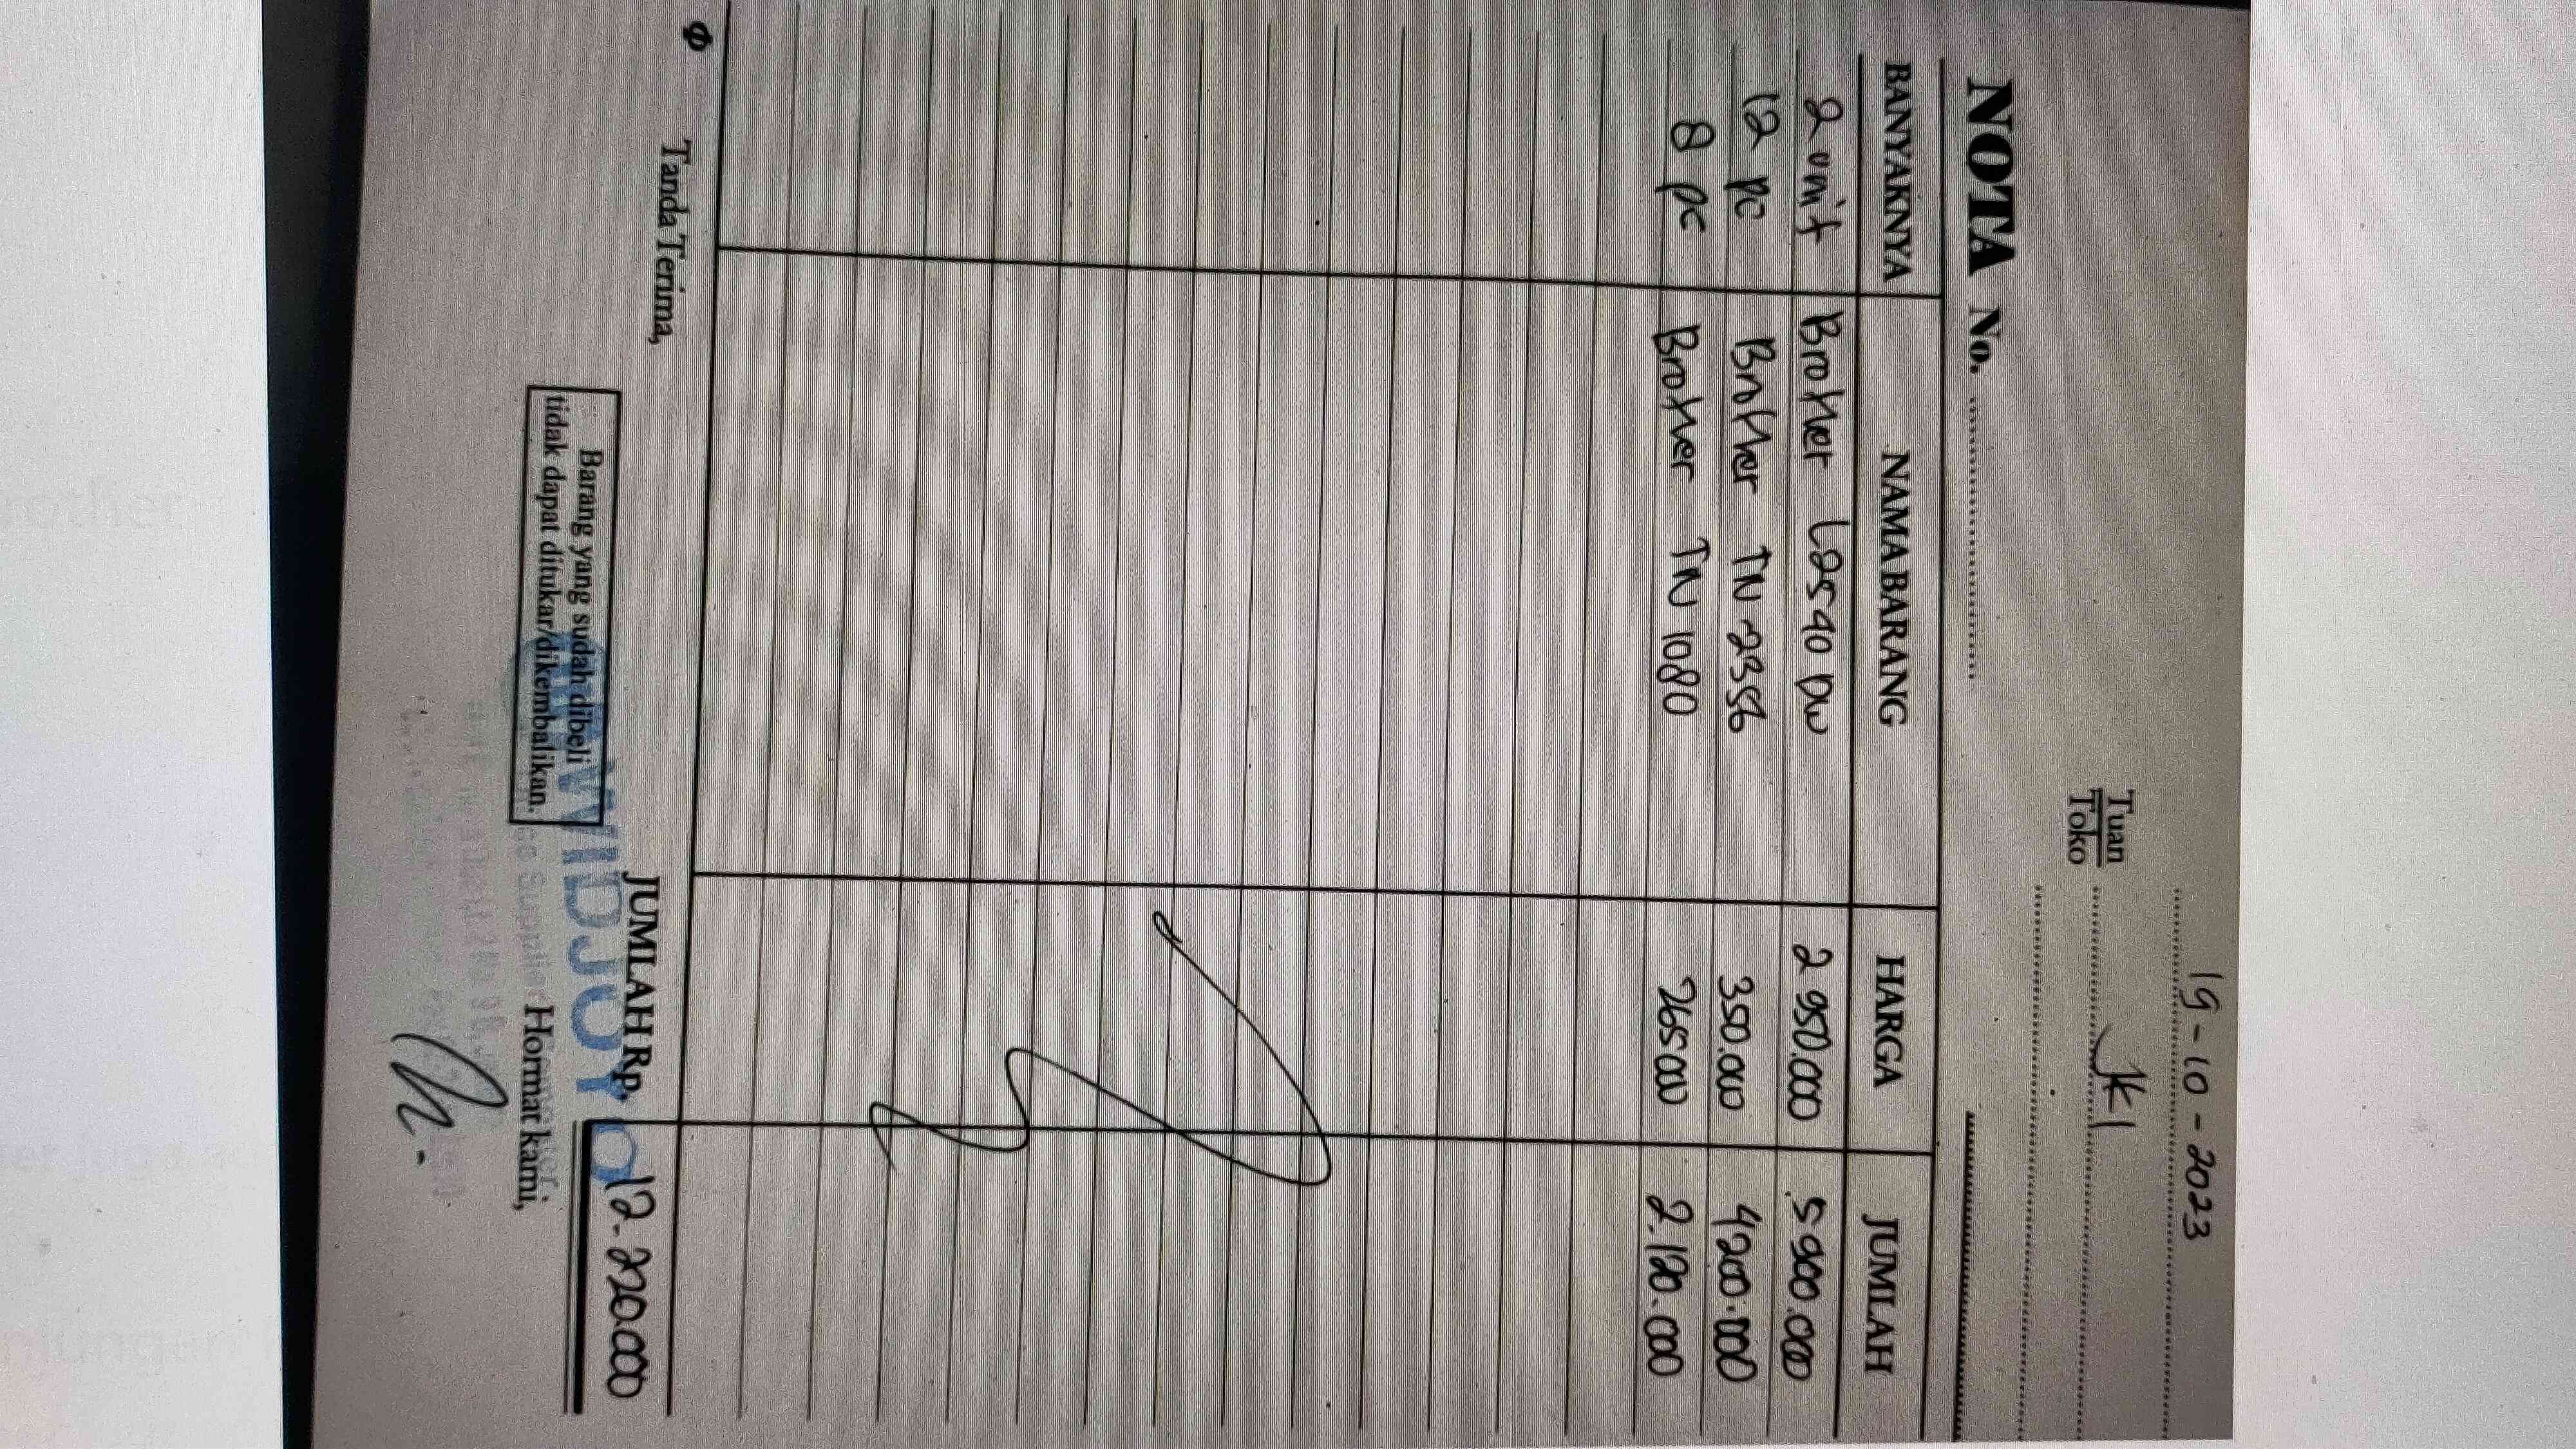 19-10-2023
Tuan
Toko
JK1
NOTA No.
BANYAKNYA NAMA BARANG HARGA JUMLAH
2 unit Brother L2540 DW 2 950.000 5 900.000
12 pc Brother TN-2356 350.000 4200.000
8 pc Brother TN 1080 265000 2.120.000
JUMLAH Rp. 12.220.000
Tanda Terima,
Barang yang sudah dibeli
tidak dapat ditukar/dikembalikan.
WIDJOYO
Hormat kami,